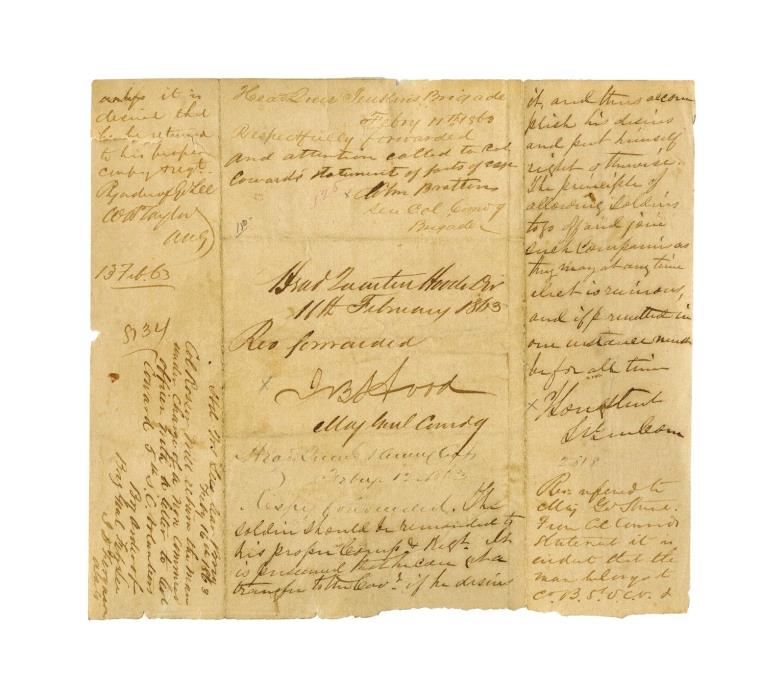 Head Qrs Jenkins Brigade
Febry 11th 1863
Respectfully forwarded
and attention called to Col
Coward's statement of facts of case
Jno Bratton
Sen Col Comdg
Brigade
Head Quarters Hoods Div
11th February 1863
Res forwarded
J B Hood
Maj Genl Comdg
Head Quarters Corps
Feby 12 1863
Respy forwarded. The
soldier should be remanded to
his proper Comp & Regt. It
is presumed that he can get a
transfer to the Cavy. if he desires
it, and thus accom
plish his desires
and put himself
right otherwise.
The principle of
allowing soldiers
to go off and join
such Companies as
they may at any time
elect is ruinous,
and if permitted in
one instance must
be for all time
Your obt servt
2818
Res. referred to
Maj Gn Stuart.
From Col Coward's
statement it is
evident that the
man belongs to
Co. B. 5th S.C.V. &
unless it is
desired that
he be returned
to his proper
compy & regt.
By order of Gn Lee
W H Taylor
AAG
13 Feb. 63
Feby 16th 1863
Col Rosser will return the man
under charge of a Non Commis
officer with a letter to Col
Coward 5th S.C. Volunteers
By order of
Brig Genl